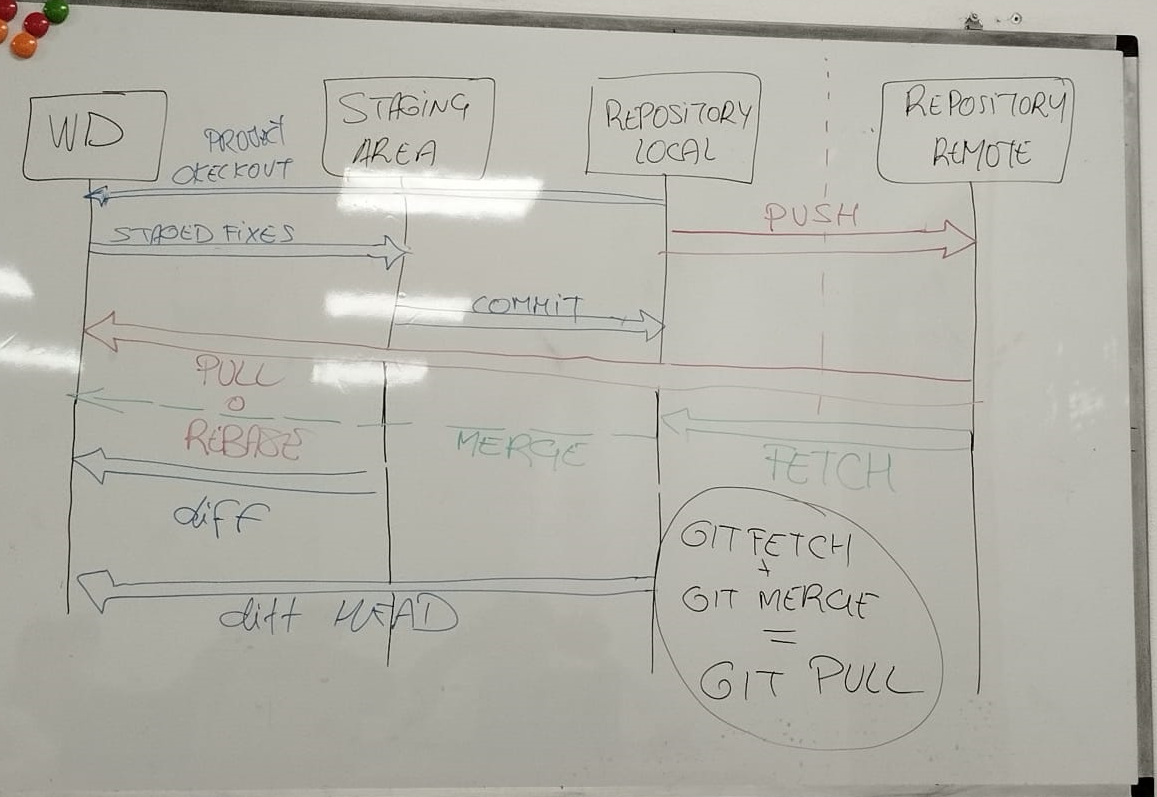 WD
STAGING
AREA
REPOSITORY
LOCAL
REPOSITORY
REMOTE
PROJECT
CKECKOUT
STAGED FIXES
PUSH
COMMIT
PULL
O
REBASE
MERGE
FETCH
diff
diff HEAD
GIT FETCH
+
GIT MERGE
=
GIT PULL